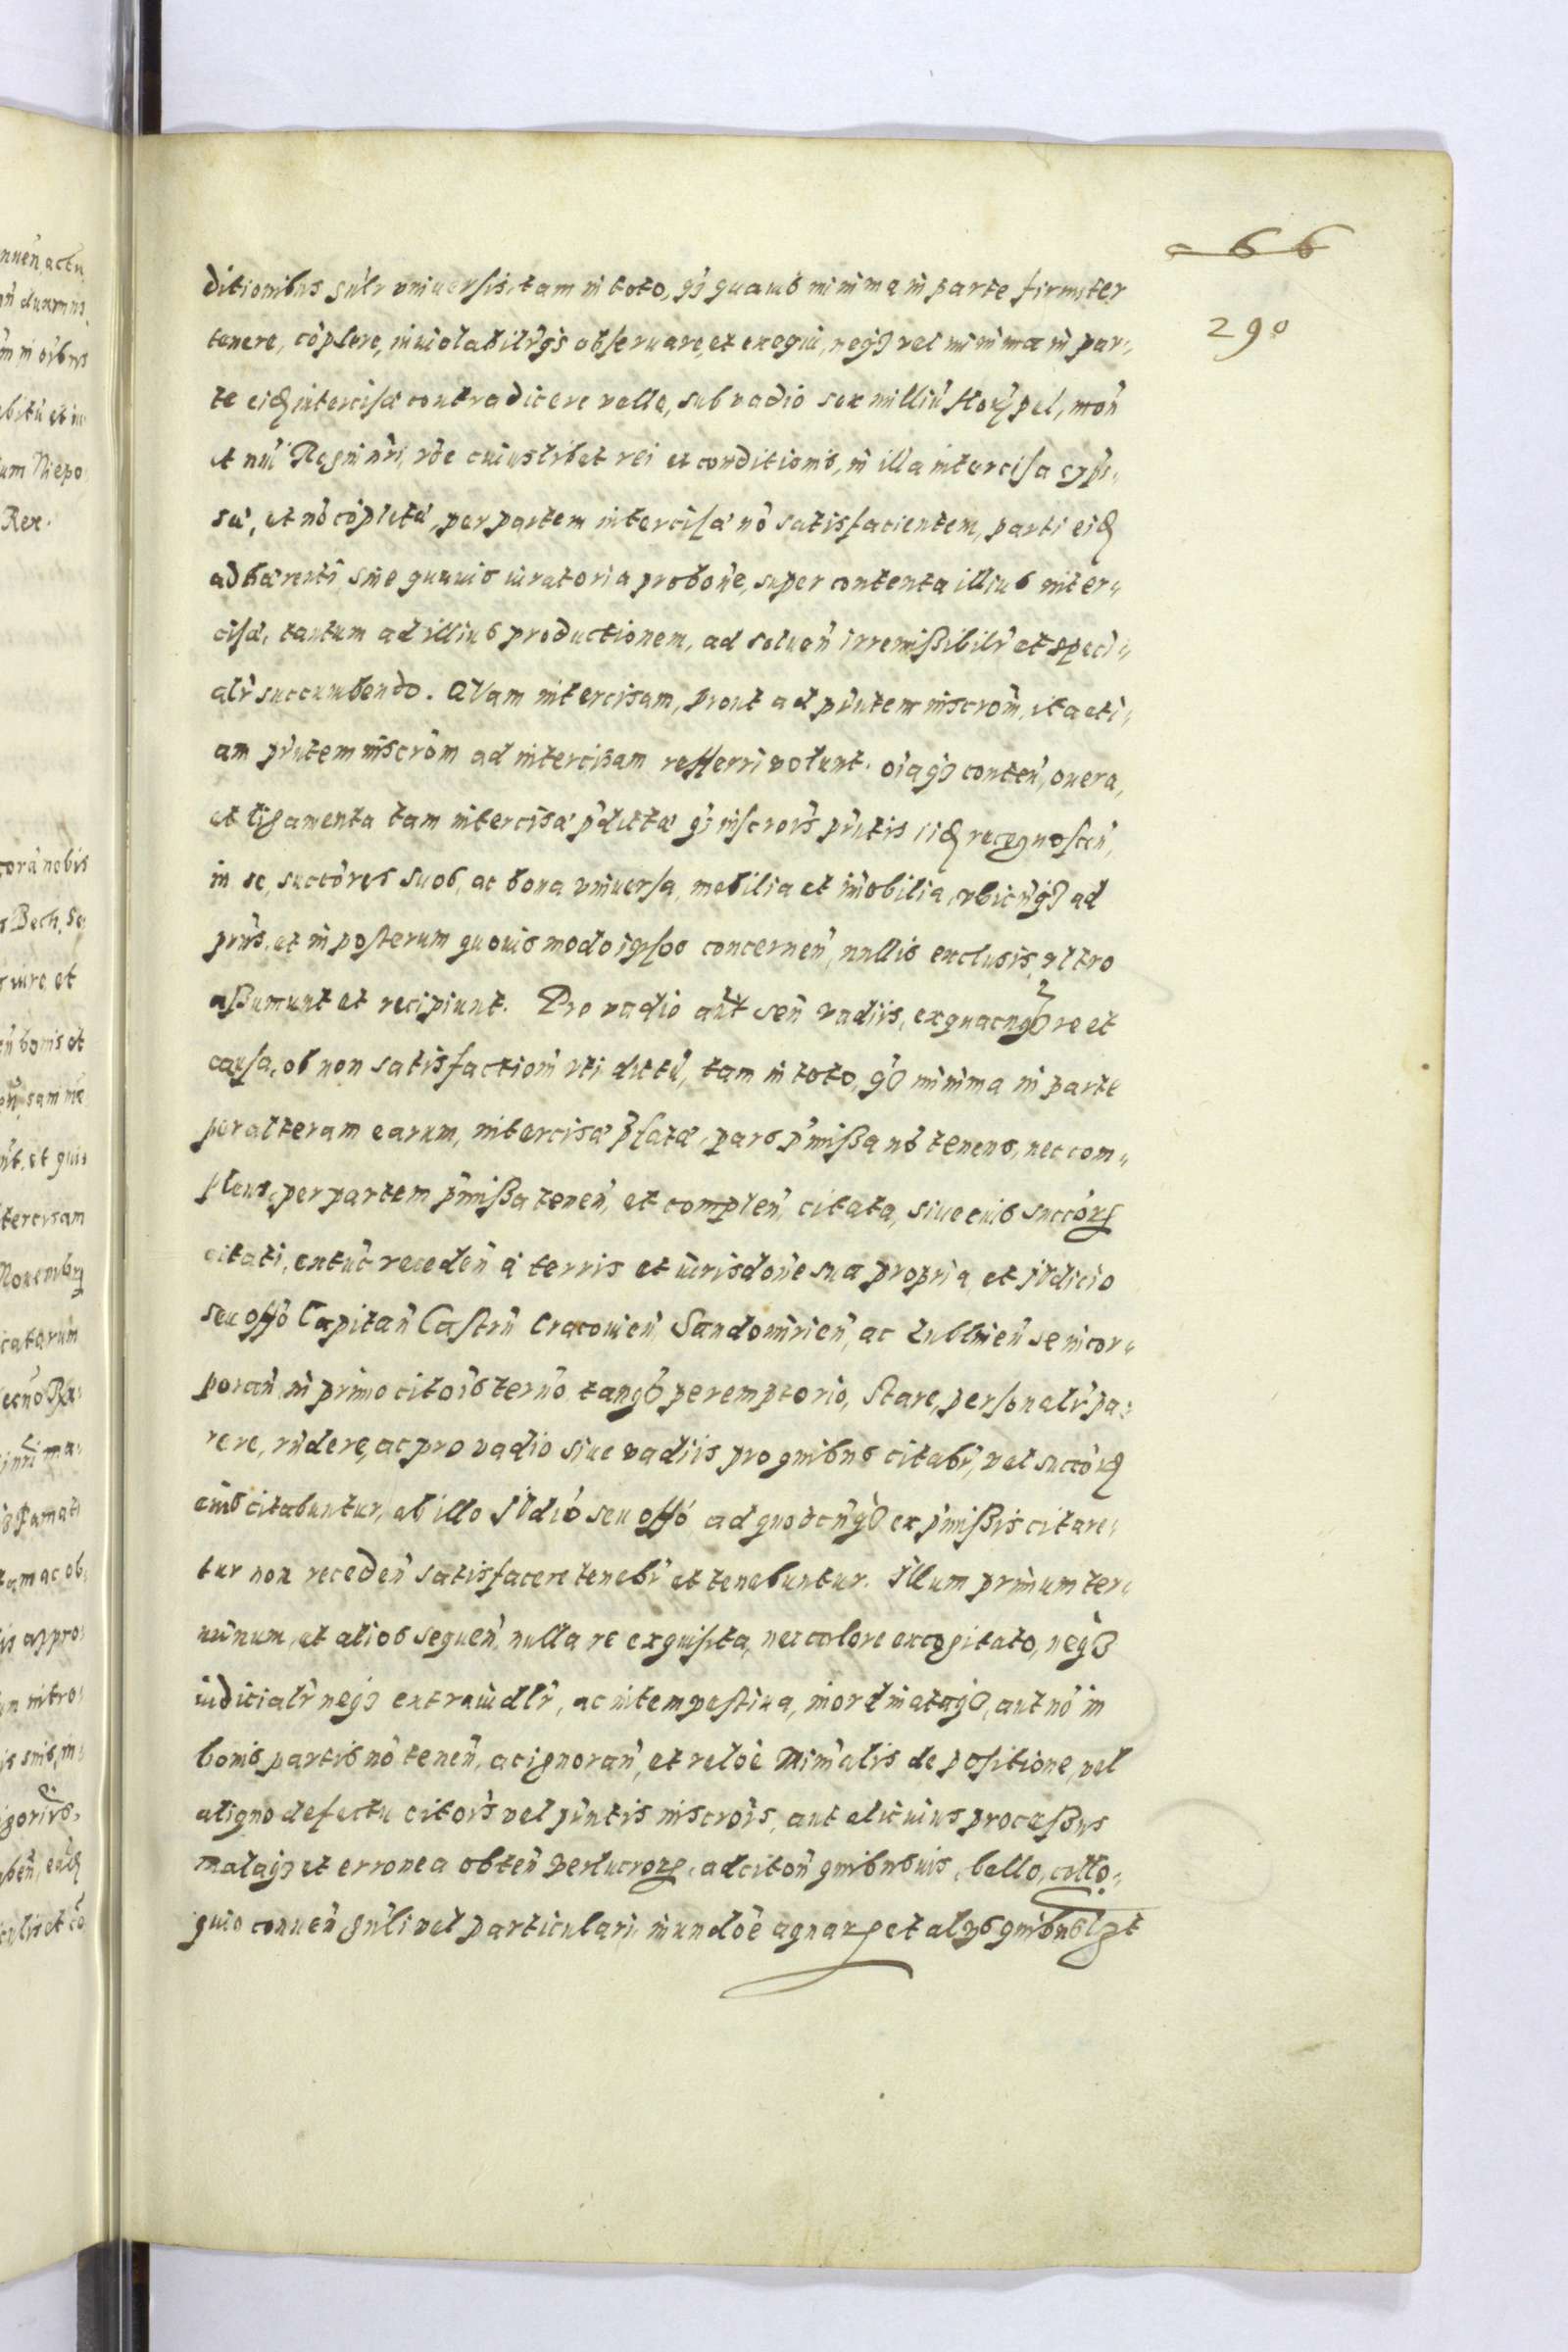 66
290
ditionibus gnlr vniuersis, tam in toto, qȝ quauis minima in parte firmiter
tenere, cõplere, inuiolabilrqȝ obseruare, et exequi, neqȝ vel minima in par„
te eiđ intercisæ contradicere velle, sub vadio sex milliũ flor pol, moñ
et nũi Regni nri, rõe cuiuslibet rei et conditionis, in illa intercisa
sæ, et nõ cõpletæ, per partem intercisæ nõ satisfacientem, parti eiđ
adhærenti, sine quauis iuratoria probone, super contenta illius inter„
cisæ, tantum ad illius productionem, ad soluen̄ irremißibilr et speci„
alr succumbendo. QVam intercisam, prout ad pñtem inscrom̄, ita eti„
am pñtem inscrõm ad intercisam refferri volunt. oiaqȝ conten̄, onera,
et ligamenta tam intercisæ pdictæ qȝ inscrois pñtis iiđ recognoscen̄,
in se, succõres suos, ac bona vniuersa, mobilia et imobilia, vbicunqȝ ad
pñs, et in posterum quouis modo ipsos concernen̄, nullis exclusis, vltro
aßumunt et recipiunt. Pro vadio aũt seu vadiis, ex quacunqȝ re et
causa, ob non satisfactiom̄ vti dictũ, tam in toto, qȝ minima in parte
per alteram earum, intercisæ pfatæ, pars pmißa nõ tenens, nec com„
plens, per partem pmißa tenen̄, et complen̄ citata, siue eius succõres
citati, extũc receden̄ à terris et iurisdone sua propria, et Jvdicio
seu offõ Capitan̄ Castrn̄ Cracouien̄, Sandomirien̄, ac Lublinen̄ se incor„
poran̄ in primo citois termo, tanqȝ peremptorio, stare, personalr pa„
rere, rñdere, ac pro vadio siue vadiis pro quibus citabr, vel succõres
eius citabuntur, ab illo Jvdio seu offõ ad quodcunqȝ ex pmißis citare„
tur non receden̄ satisfacere tenebr et tenebuntur. Illum primum ter„
minum, et alios sequen̄ nulla re exquisita, nec colore excogitato, neqȝ
iudicialr neqȝ extraiudlr, ac intempestiua, inordinataqȝ, aut nõ in
bonis partis nõ tenen̄, ac ignoran̄, et relõe Minralis depositione, vel
aliquo defectu citois vel pñtis inscrois, aut alicuius proceßus
malaqȝ et erronea obten̄ perlucror, ad citon̄ quibusuis, bello, collo„
quio conuen̄ gnli vel particulari, inundõe aquar et alijs quibuslȝt